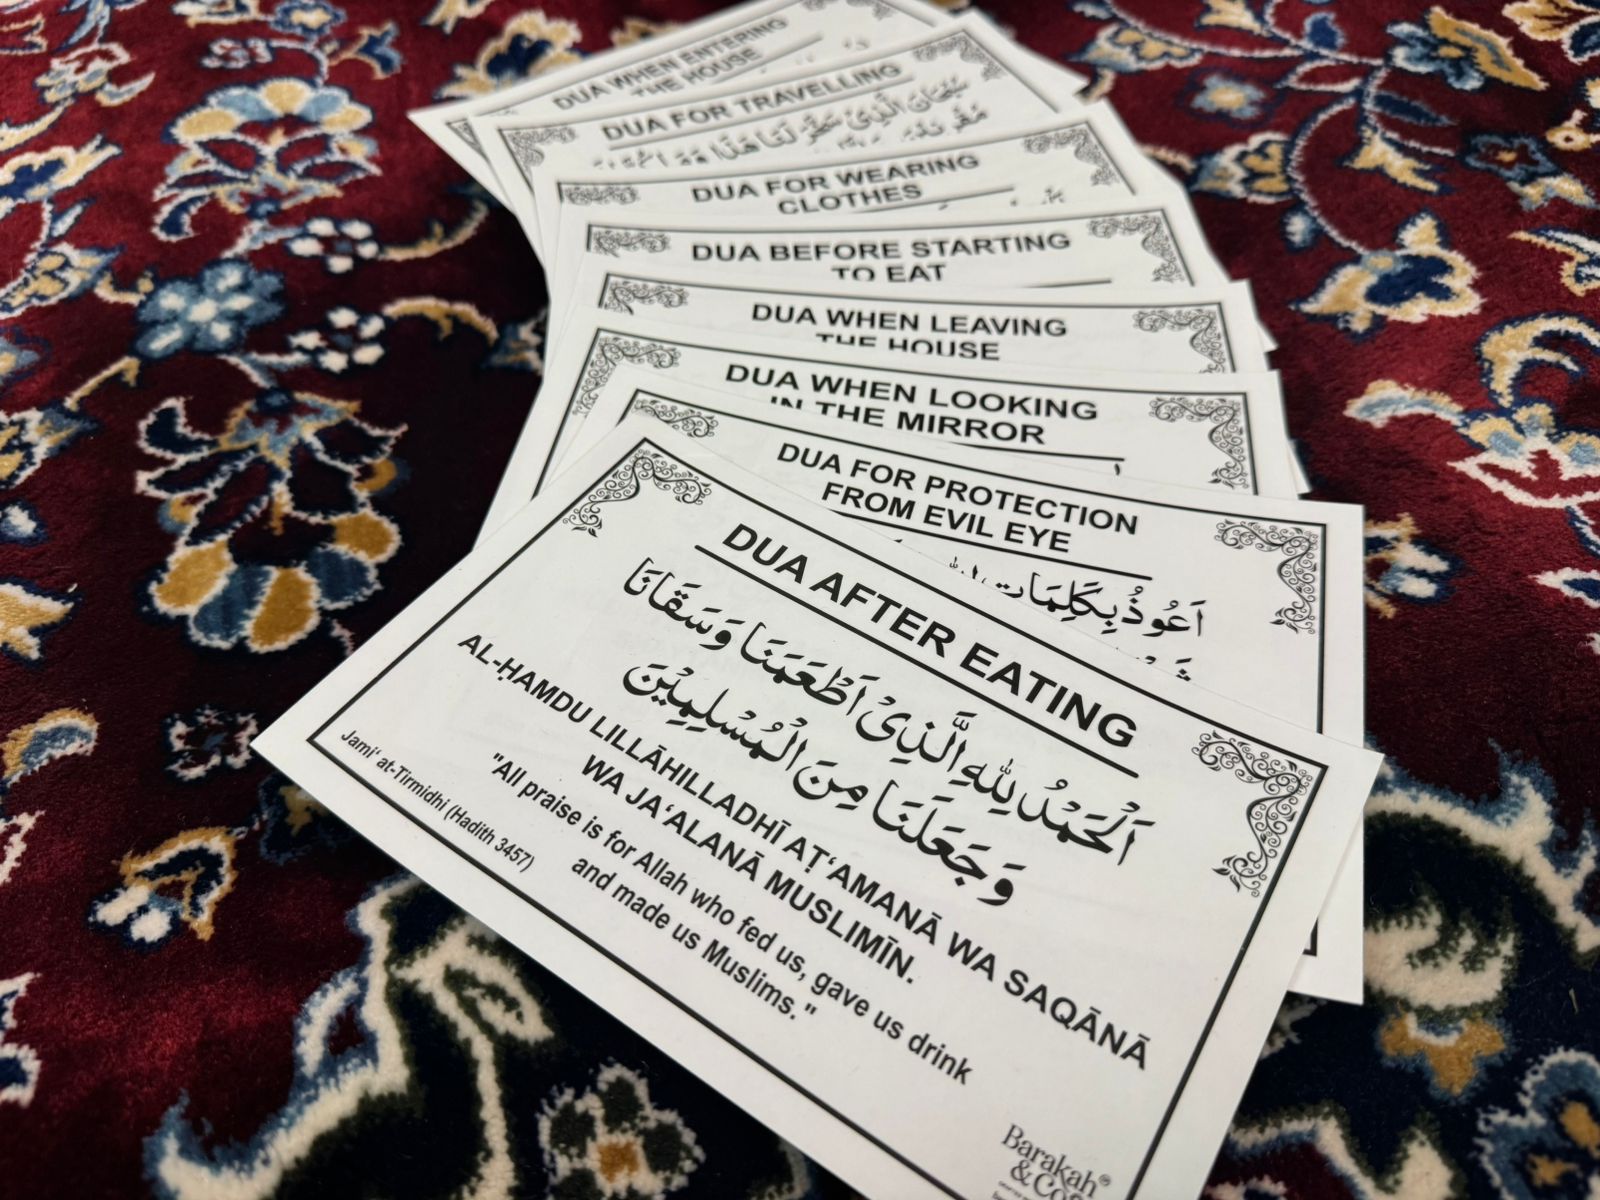 DUA WHEN ENTERING
THE HOUSE
DUA FOR TRAVELLING
DUA FOR WEARING
CLOTHES
DUA BEFORE STARTING
TO EAT
DUA WHEN LEAVING
THE HOUSE
DUA WHEN LOOKING
IN THE MIRROR
DUA FOR PROTECTION
FROM EVIL EYE
اَعُوْذُ بِكَلِمَاتِ
DUA AFTER EATING
اَلْحَمْدُ لِلّٰهِ الَّذِىْ اَطْعَمَنَا وَسَقَانَا
وَجَعَلَنَا مِنَ الْمُسْلِمِيْنَ
AL-ḤAMDU LILLĀHILLADHĪ AṬ‘AMANĀ WA SAQĀNĀ
WA JA‘ALANĀ MUSLIMĪN.
"All praise is for Allah who fed us, gave us drink
and made us Muslims."
Jami‘ at-Tirmidhi (Hadith 3457)
Barakah®
& Co